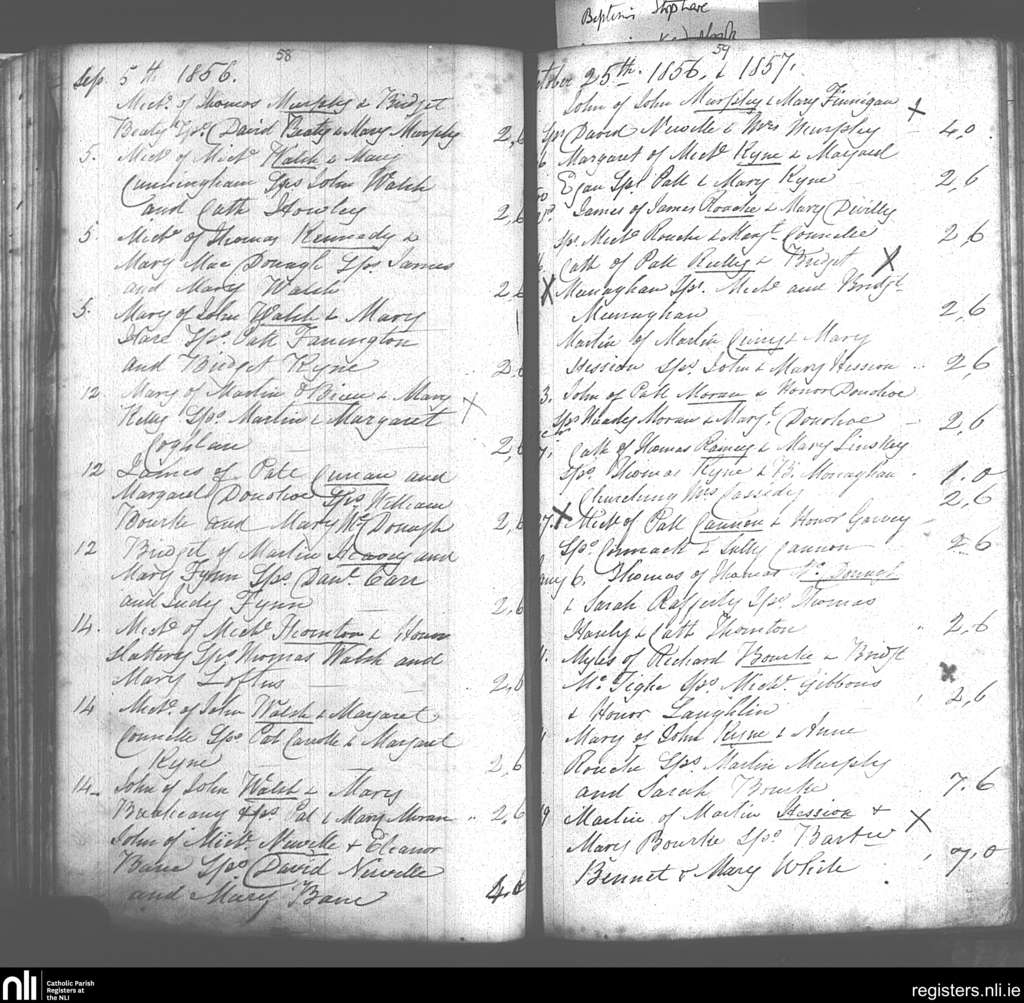 Baptisms
58
Sep. 5th 1856.
Michl. of Thomas Murphy & Bridget
Beaty Sps. David Beaty & Mary Murphy 2,6
5. Michl. of Michl. Walsh & Mary
Cunningham Sps John Walsh
and Cath Howley 2,6
5. Michl. of Thomas Kennedy &
Mary Mac Donagh Sps. James
and Mary Walsh 2,6
5. Mary of John Walsh & Mary
Hare Sps. Patk Farrington
and Bridget Kyne 2,6
12. Mary of Martin O'Brien & Mary
Kelly Sps. Martin & Margaret
Coghlan 2,6
12 James of Patt Curran and
Margaret Donohoe Sps William
Bourke and Mary Mc.Donagh 2,6
12 Bridget of Martin and
Mary Fynn Sps. Danl. Carr
and Judy Fynn 2,6
14. Michl. of Michl. Thornton & Honor
Slattery Sps Thomas Walsh and
Mary Loftus 2,6
14 Michl. of John Walsh & Margaret
Connelle Sps Pat & Margaret
Kyne 2,6
14 John of John Walsh & Mary
Sps Pat & Mary Moran 2,6
John of Michl. Newelle & Eleanor
Bane Sps. David Newelle
and Mary Bane 4,0
59
October 25th. 1856, & 1857.
John of John Murphy & Mary Finnigan X
Sps David Newelle & Mrs Murphy 4,0
Margaret of Michl. Kyne & Margaret
Egan Sps. Patt & Mary Kyne 2,6
James of James Roache & Mary Divilly
Sps. Michl. Rouche & Margt. Connelle 2,6
Cath of Patt Kelly & Bridget X
X Monaghan Sps. Michl. and Bridgt.
Monaghan 2,6
Martin of Martin & Mary
Hession Sps. John & Mary Hession 2,6
3. John of Patt Moran & Honor Donohoe
Sps Moran & Margt. Donohoe 2,6
7. Cath of Thomas & Mary Linskey
Sps. Thomas Kyne & B. Monaghan 1.0
Churching Mrs Cassedy 2,6
7. X Michl. of Patt Cannon & Honor Garvey
Sps. Cormack & Sally Cannon 2 6
6. Thomas of Thomas Mc.Donagh
& Sarah Rafferty Sps. Thomas
Hanly & Cath Thornton 2,6
Myles of Richard Bourke & Bridgt
Mc.Tighe Sps. Michl. Gibbons X
& Honor Laughlin 2,6
Mary of John Kyne & Anne
Rouche Sps. Martin Murphy
and Sarah Bourke 7.6
9 Martin of Martin Hession & X
Mary Bourke Sps. Bartw
Bennet & Mary White 7,0
nli Catholic Parish
Registers at
the NLI
registers.nli.ie